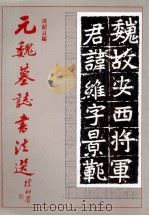 魏故安西將軍
君諱維字景範
元魏墓誌書法选